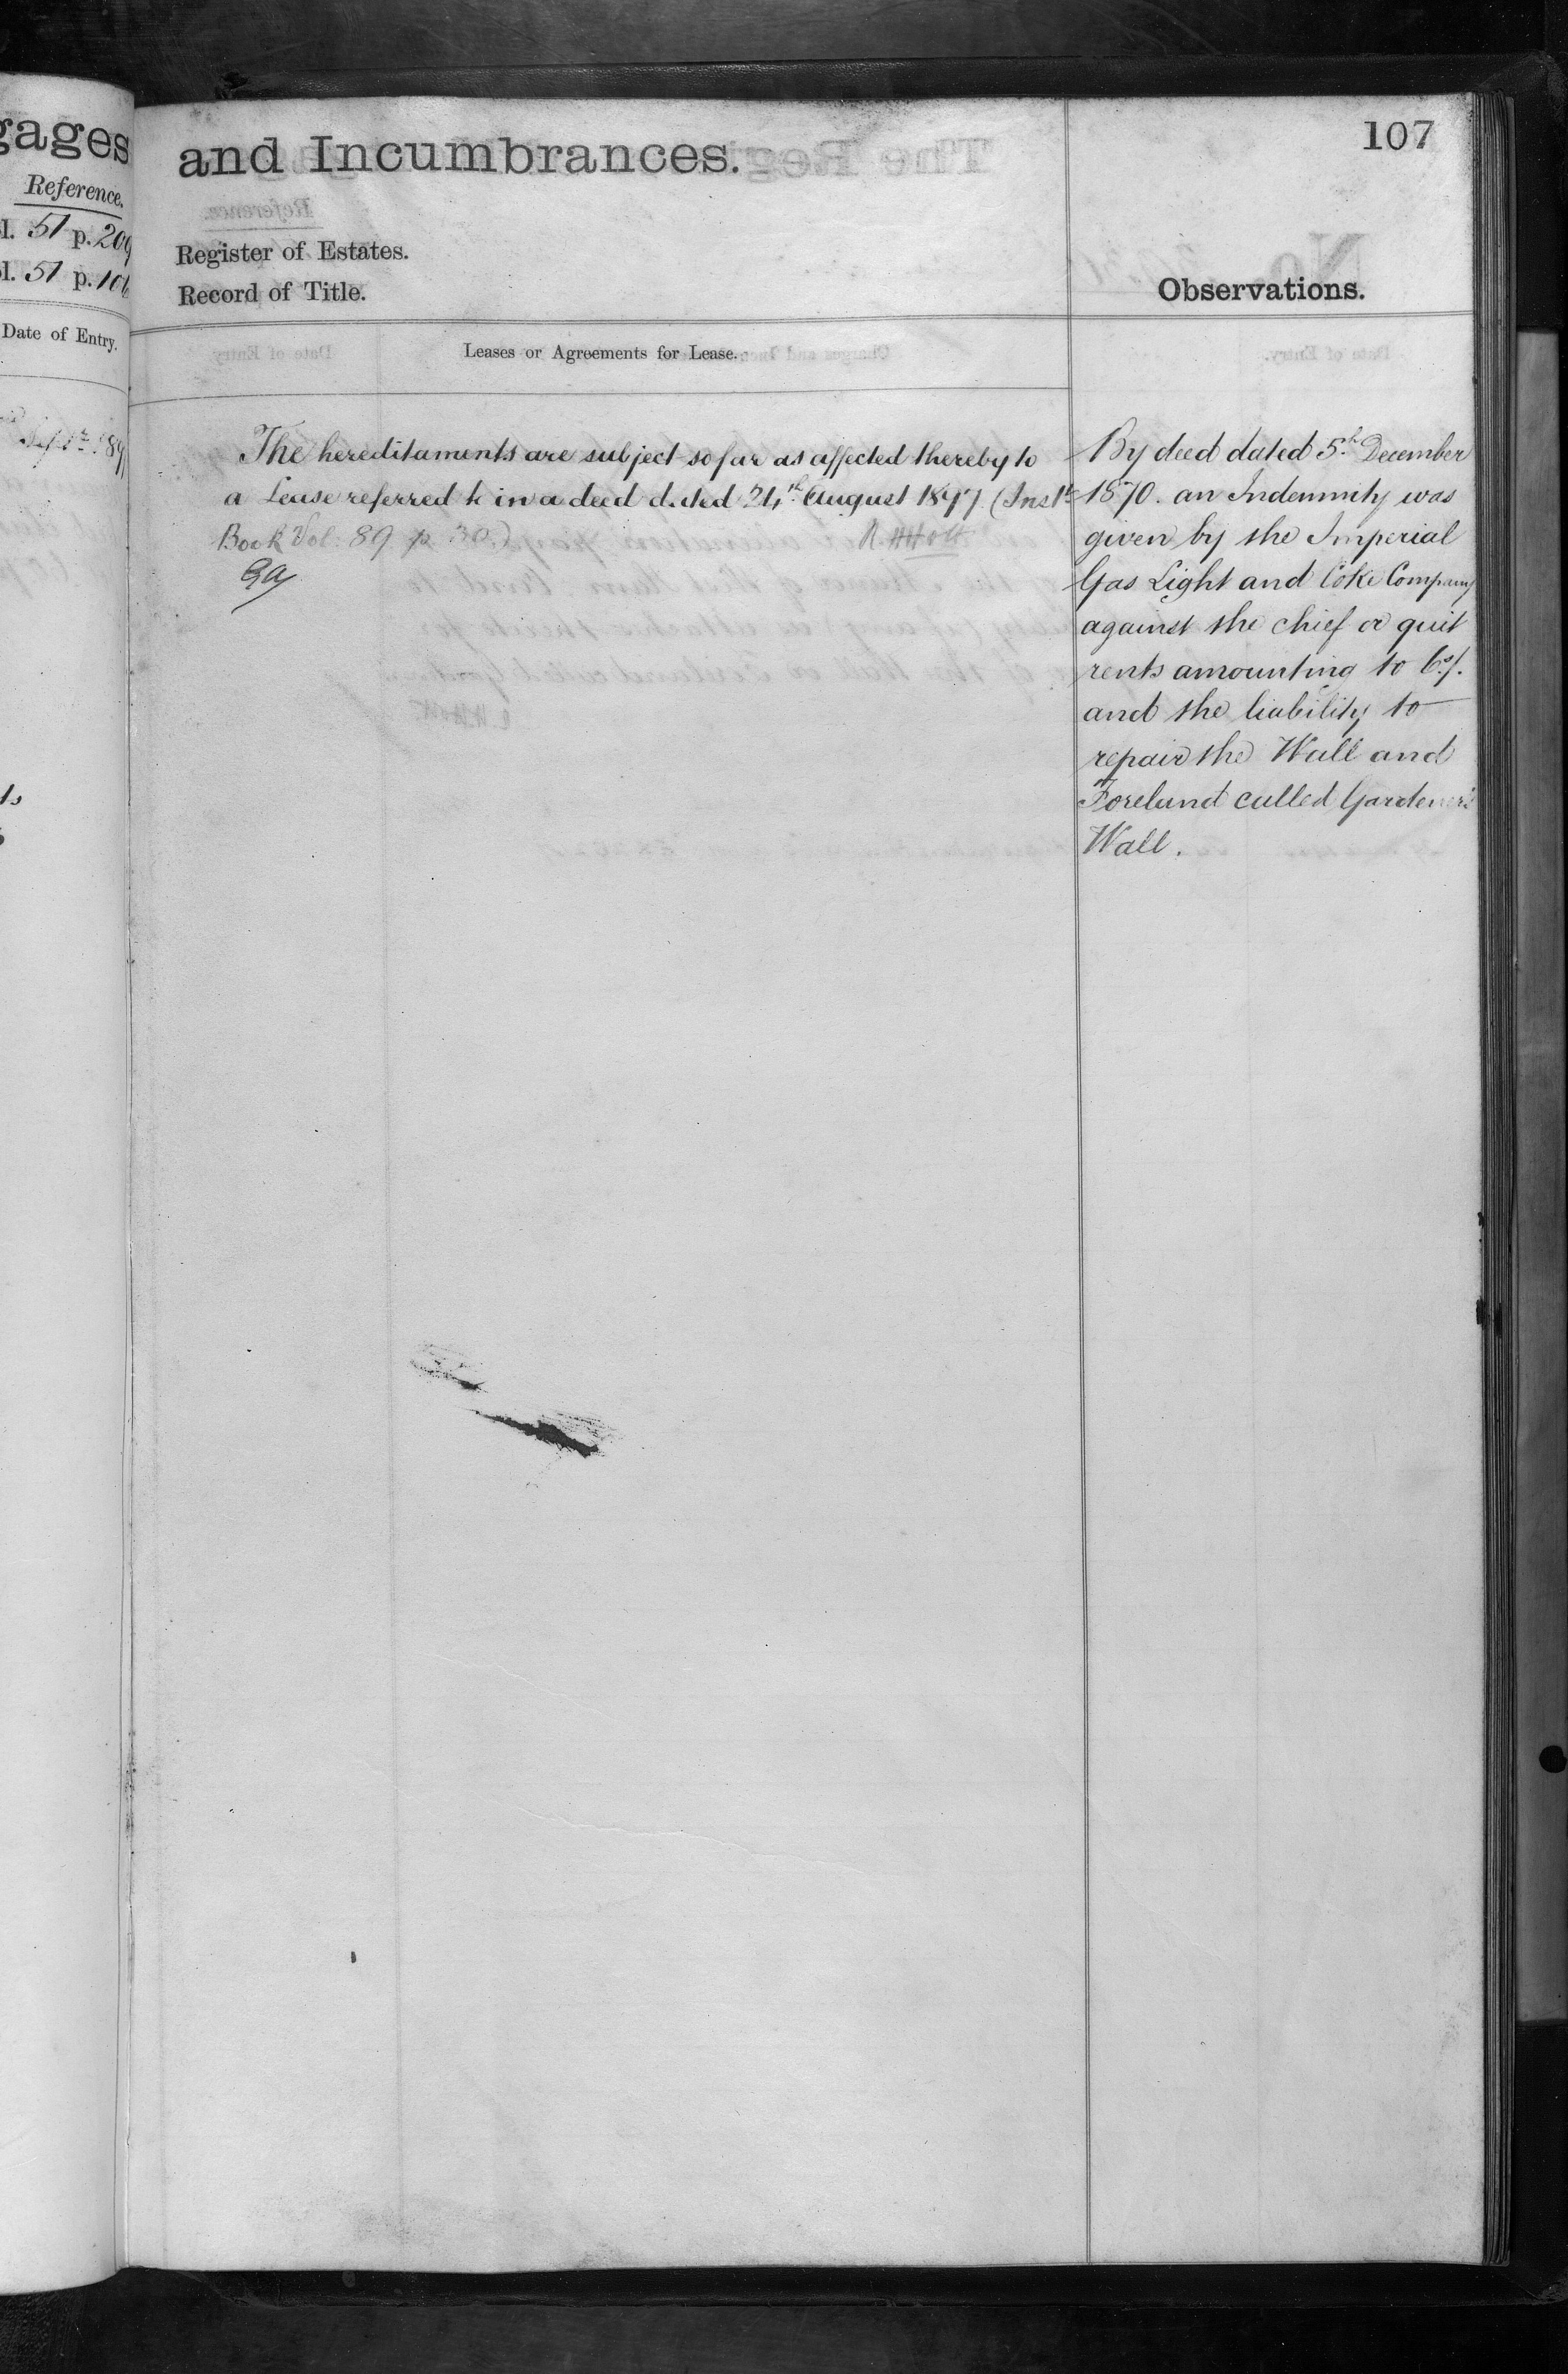 gages
Reference.
l. 51 p. 209
l. 51 p. 106
Date of Entry.
and Incumbrances.
107
Register of Estates.
Record of Title.
Observations.
Leases or Agreements for Lease.
The hereditaments are subject so far as affected thereby to
a Lease referred to in a deed dated 24th August 1897. (Inst.
Book Vol: 89 p. 30.)
By deed dated 5th December
1870. an Indemnity was
given by the Imperial
Gas Light and Coke Company
against the chief or quit
rents amounting to 6s/.
and the liability to
repair the Wall and
Foreland called Gardener's
Wall.